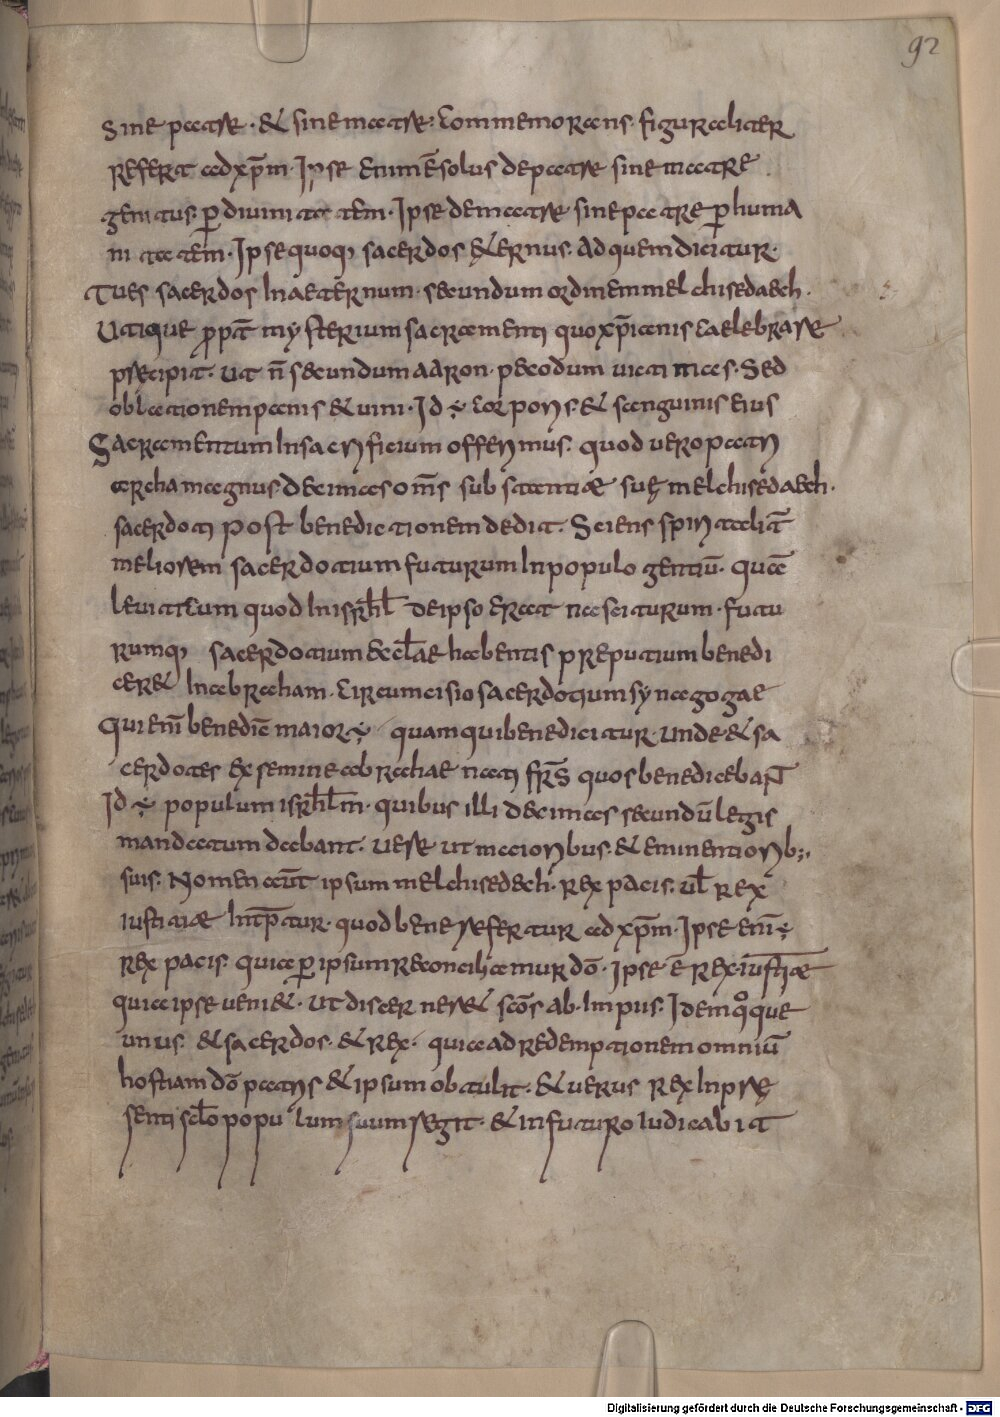 92
sine patre · & sine matre · Commemorans figuraliter
refert ad xp̄m · Ipse enim ē solus de patre sine matre
genitus · p̄ diuinitatem · Ipse de matre sine patre p̄ huma
nitatem · Ipse quoq; sacerdos &ernus · Ad quem dicitur ·
Tu es sacerdos In aeternum · secundum ordinem melchisedaech ·
Utique propt̄ mysterium sacramenti quo xp̄ianis caelebrare
precipit · Ut n̄ secundum aaron · pecodum uictimas · Sed
oblationem panis & uini · Id ÷ corporis & sanguinis eius
Sacramentum In sacrificium offerimus · quod uero patri
archa magnus decimas om̄s substantiae suę melchisedaech ·
sacerdoti post benedictionem dedit · Sciens spiritalit̄
meliorem sacerdotium futurum In populo gentiū · quā
leuiticum quod In isrl̄ de ipso erat nasciturum · futu
rumq; sacerdotium aecl̄ae habentis preputium benedi
cer& In abraham · circumcisio sacerdotium synagogae
Qui enī benedic̄ maior ÷ quam qui benedicitur · unde & sa
cerdotes ex semine abrachae nati fr̄s quos benedicebant
Id ÷ populum isrl̄m · quibus illi decimas secundū legis
mandatum dabant · uere ut maioribus · & eminentiorib; ·
suis · Nomen aūt ipsum melchisedech · rex pacis · ul̄ rex
iustitiae Int̄p̄tur · quod bene refertur ad xp̄m · Ipse enī ÷
rex pacis · quia p̄ ipsum reconcilia mur dō · Ipse ē rex iustitiae
quia ipse ueni& · ut discerner& sc̄os ab Impiis · Idemq̊que
unus · & sacerdos · & rex · quia ad redemptionem omniū
hostiam dō patris & ipsum obtulit · & uerus rex In pre
senti sc̄lo populum suum regit · & in futuro Iudicabit
Digitalisierung gefördert durch die Deutsche Forschungsgemeinschaft - DFG